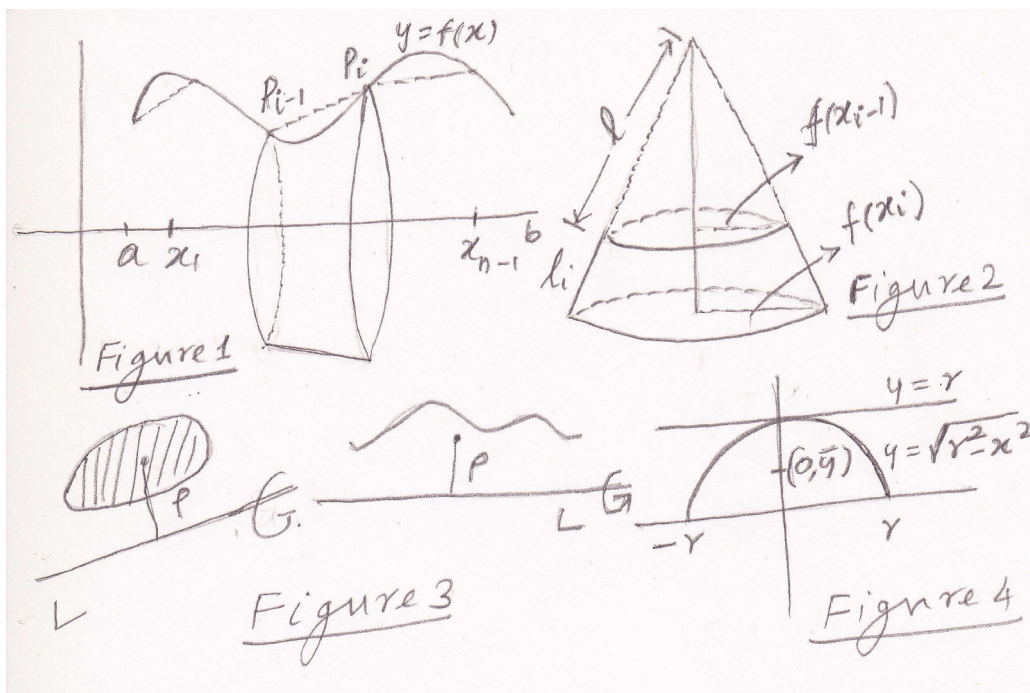 y=f(x)
P_{i-1}
P_i
a
x_1
x_{n-1}
b
Figure 1
l
f(x_{i-1})
f(x_i)
l_i
Figure 2
ρ
L
ρ
L
Figure 3
y=r
y=√r²-x²
(0,ȳ)
-r
r
Figure 4